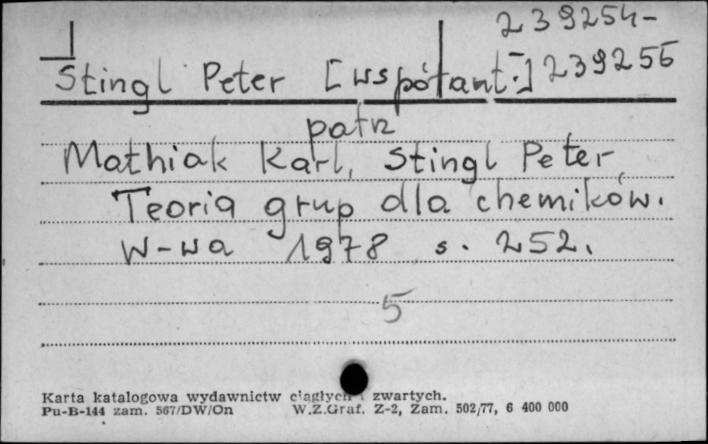 239254-
Stingl Peter [współaut.] 239256
patrz
Mathiak Karl, Stingl Peter
Teoria grup dla chemików.
W-wa 1978 s. 252.
5
Karta katalogowa wydawnictw ciągłych i zwartych.
Pu-B-144 zam. 567/DW/On W.Z.Graf. Z-2, Zam. 502/77, 6 400 000